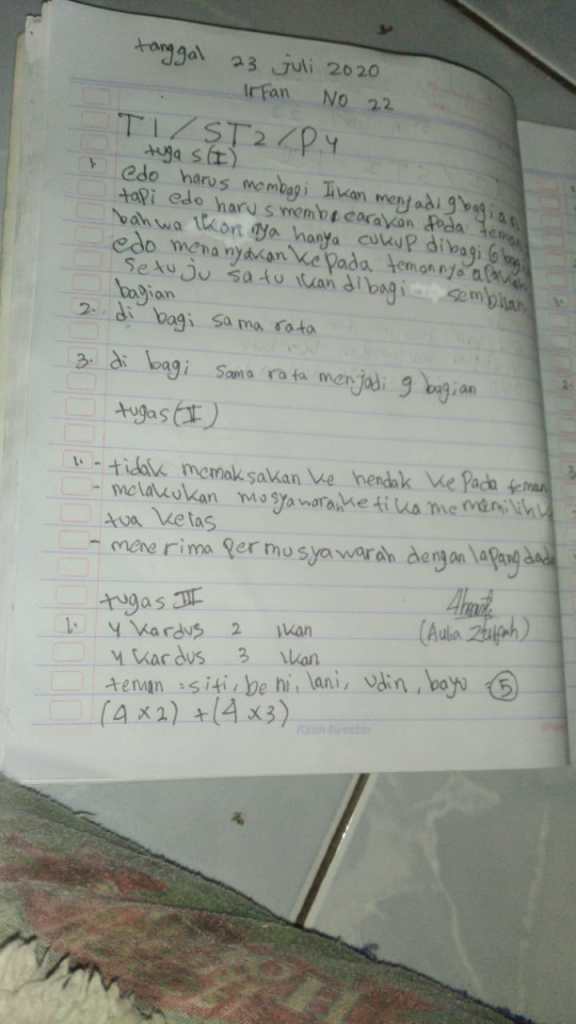 tanggal 23 juli 2020
Irfan NO 22
T1/ST2/P4
tugas (I)
1. edo harus membagi Iikan menjadi 9 bagian
tapi edo harus membicarakan pada teman
bahwa ikan nya hanya cukup dibagi 6 bagi
edo menanyakan kepada temannya apakah
setuju satu ikan dibagi sembilan
bagian
2. di bagi sama rata
3. di bagi sama rata menjadi 9 bagian
tugas (II)
1. - tidak memaksakan ke hendak ke pada teman
- melakukan musyawarah ketika memilih
tua kelas
- menerima permusyawarah dengan lapang dada
tugas III
1. 4 kardus 2 ikan
(Aulia
4 kardus 3 ikan
teman : siti, beni, lani, udin, bayu = 5
(4 x 2) + (4 x 3)